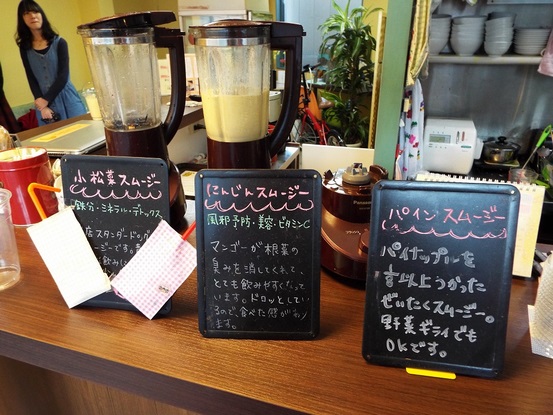 小松菜スムージー
鉄分・ミネラル・デトックス
店スタンダードの
ージーです。
にんじんスムージー
風邪予防・美容・ビタミンC
マンゴーが根菜の
臭みを消してくれて、
とても飲みやすくなって
います。ドロッとしてい
るので、食べた感があり
ます。
パインスムージー
パイナップルを
以上つかった
ぜいたくスムージー。
野菜ギライでも
OKです。
Panasonic